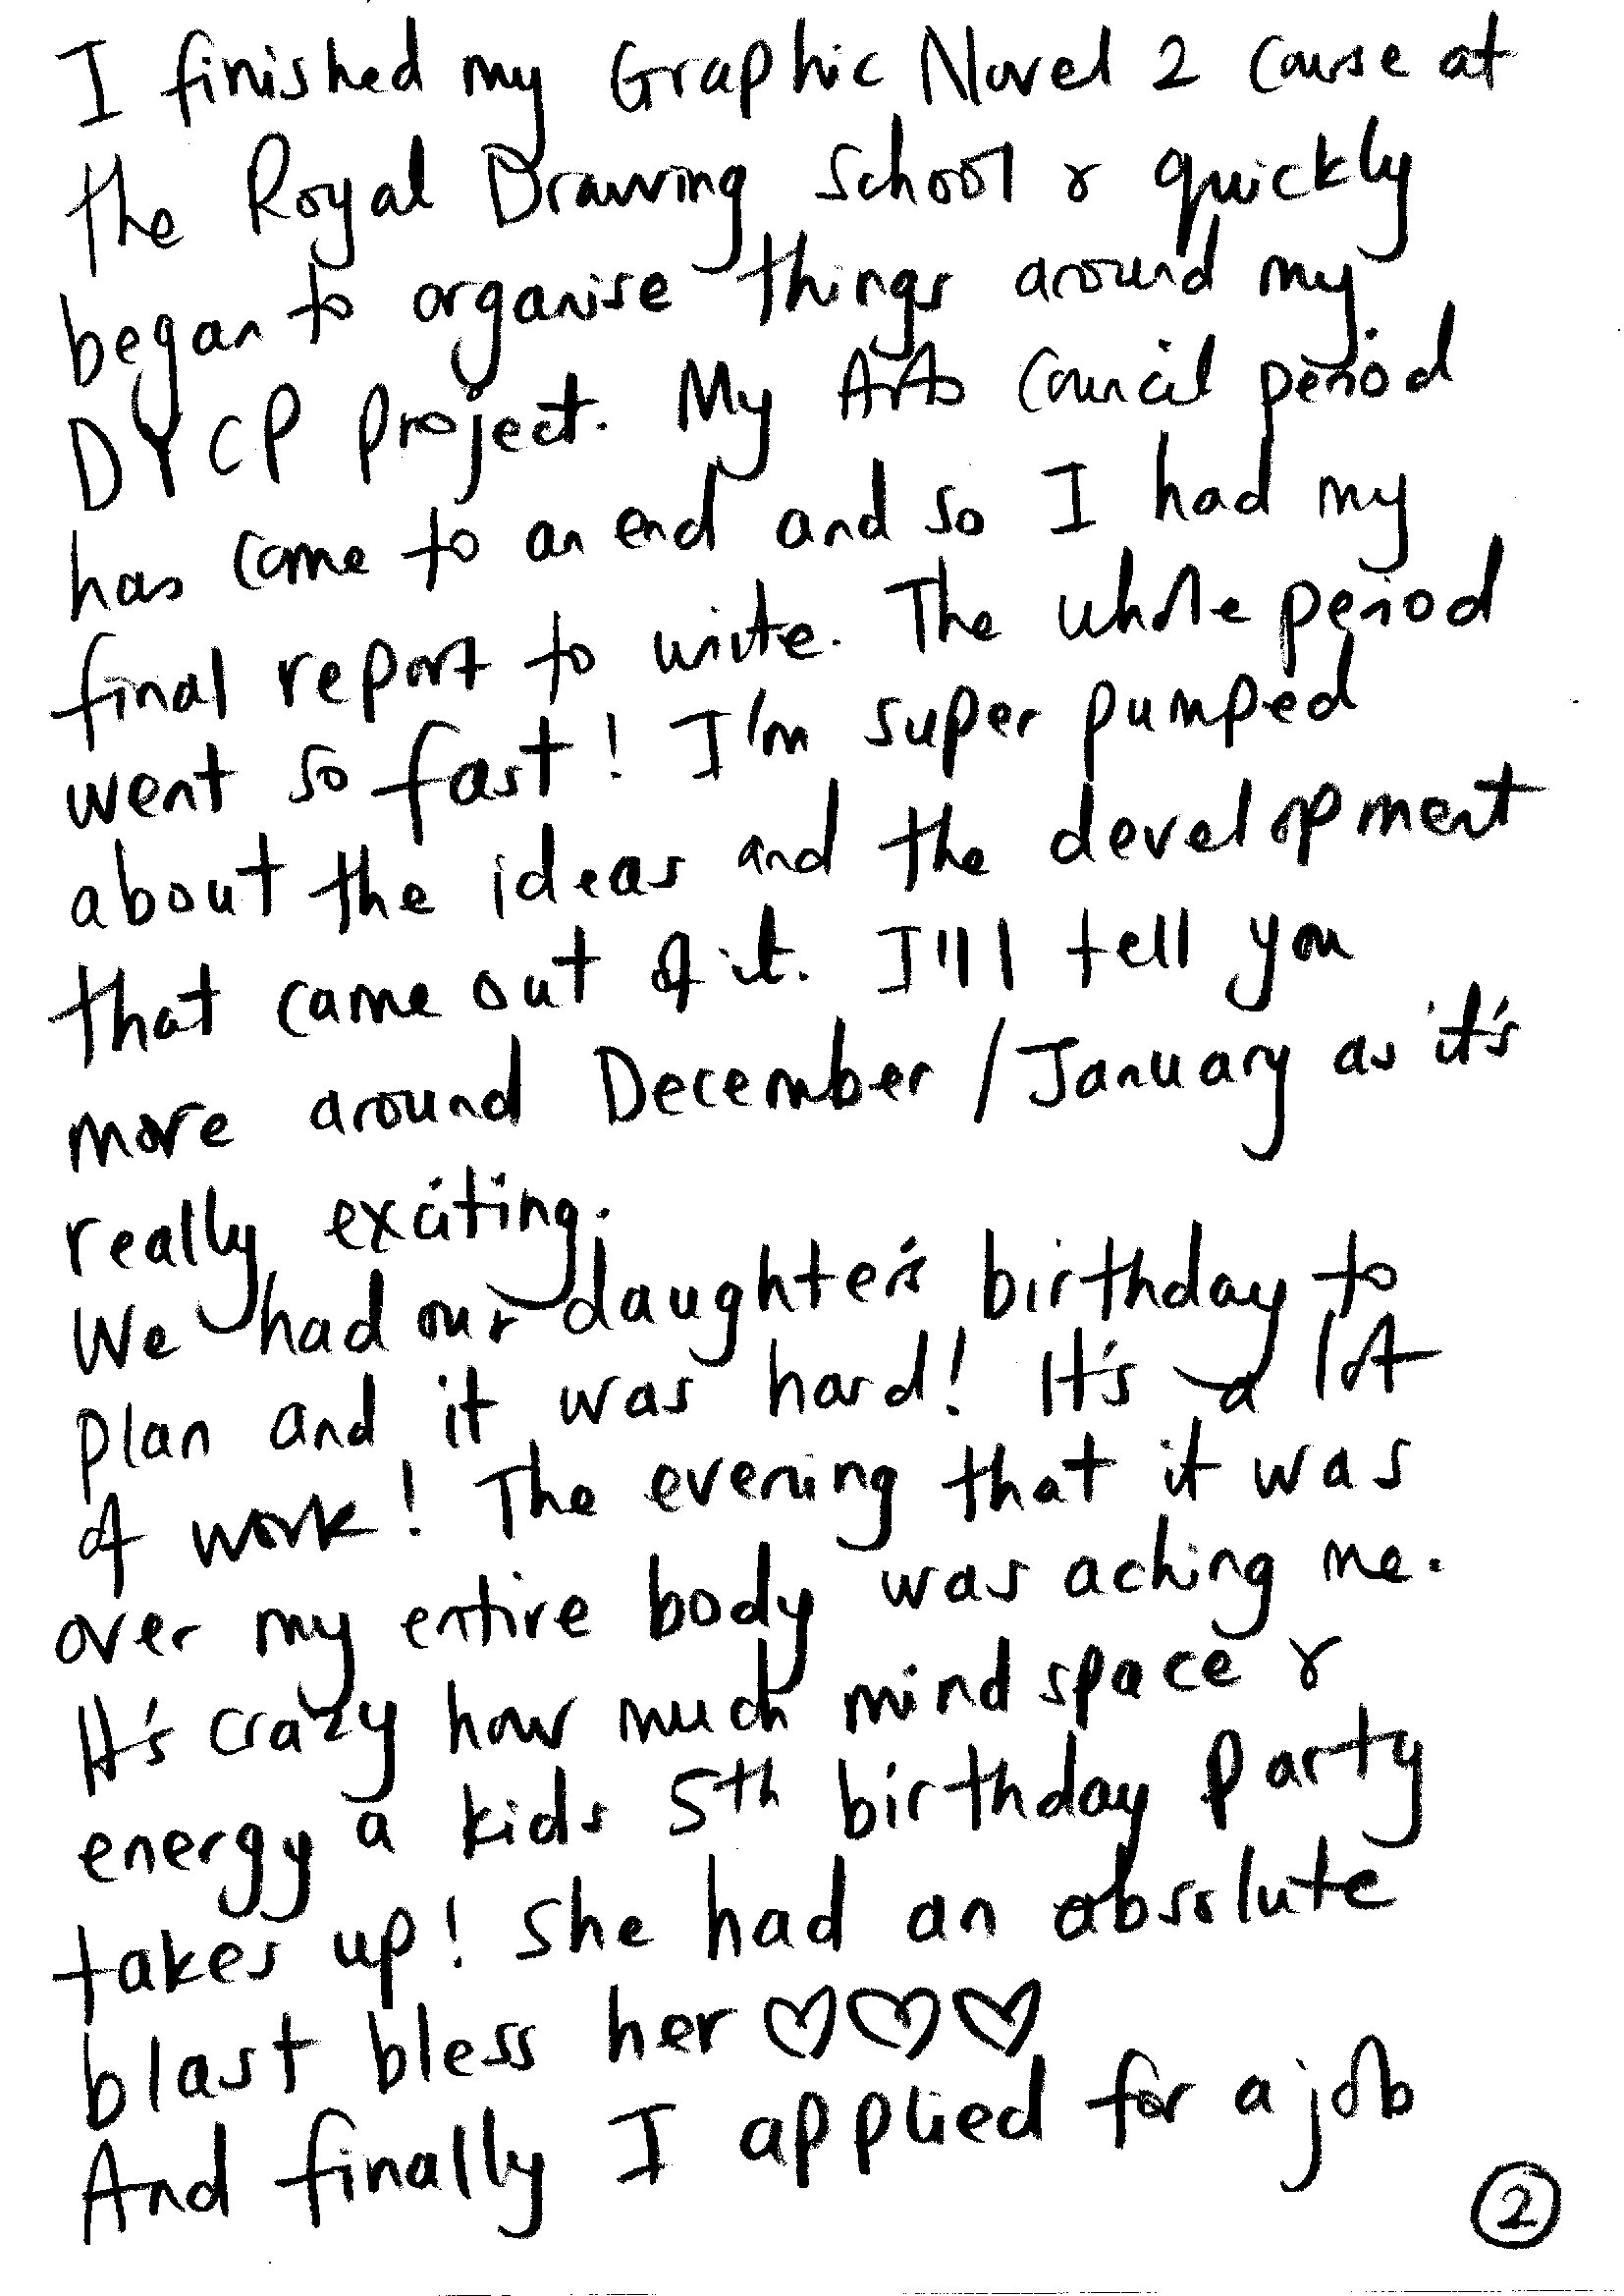 I finished my Graphic Novel 2 course at
the Royal Drawing School & quickly
began to organise things around my
DYCP project. My Arts Council period
has come to an end and so I had my
final report to write. The whole period
went so fast! I'm super pumped
about the ideas and the development
that came out of it. I'll tell you
more around December / January as it's
really exciting.
We had our daughter's birthday to
plan and it was hard! It's a lot
of work! The evening that it was
over my entire body was aching me.
It's crazy how much mind space &
energy a kids 5th birthday party
takes up! She had an absolute
blast bless her ♡♡♡
And finally I applied for a job
2